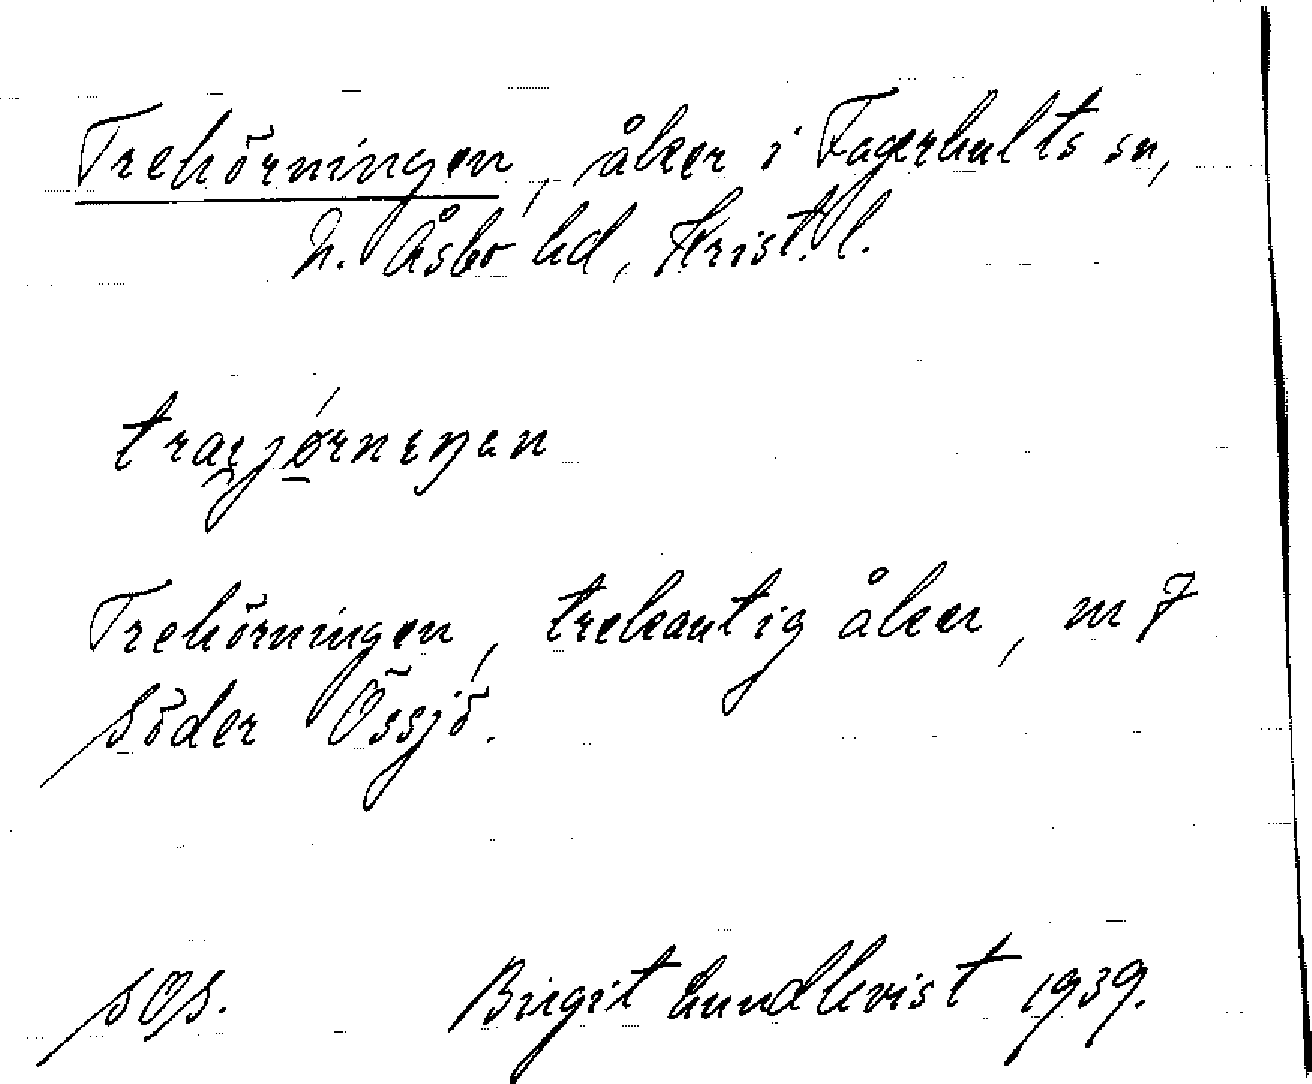 Trehörningen, åker i Fagerhults sn,
N. Åsbo hd, Krist. l.
Trehörningen, trekantig åker, m 7
Söder Össjö.
SOS. Birgit Lundkvist 1939.